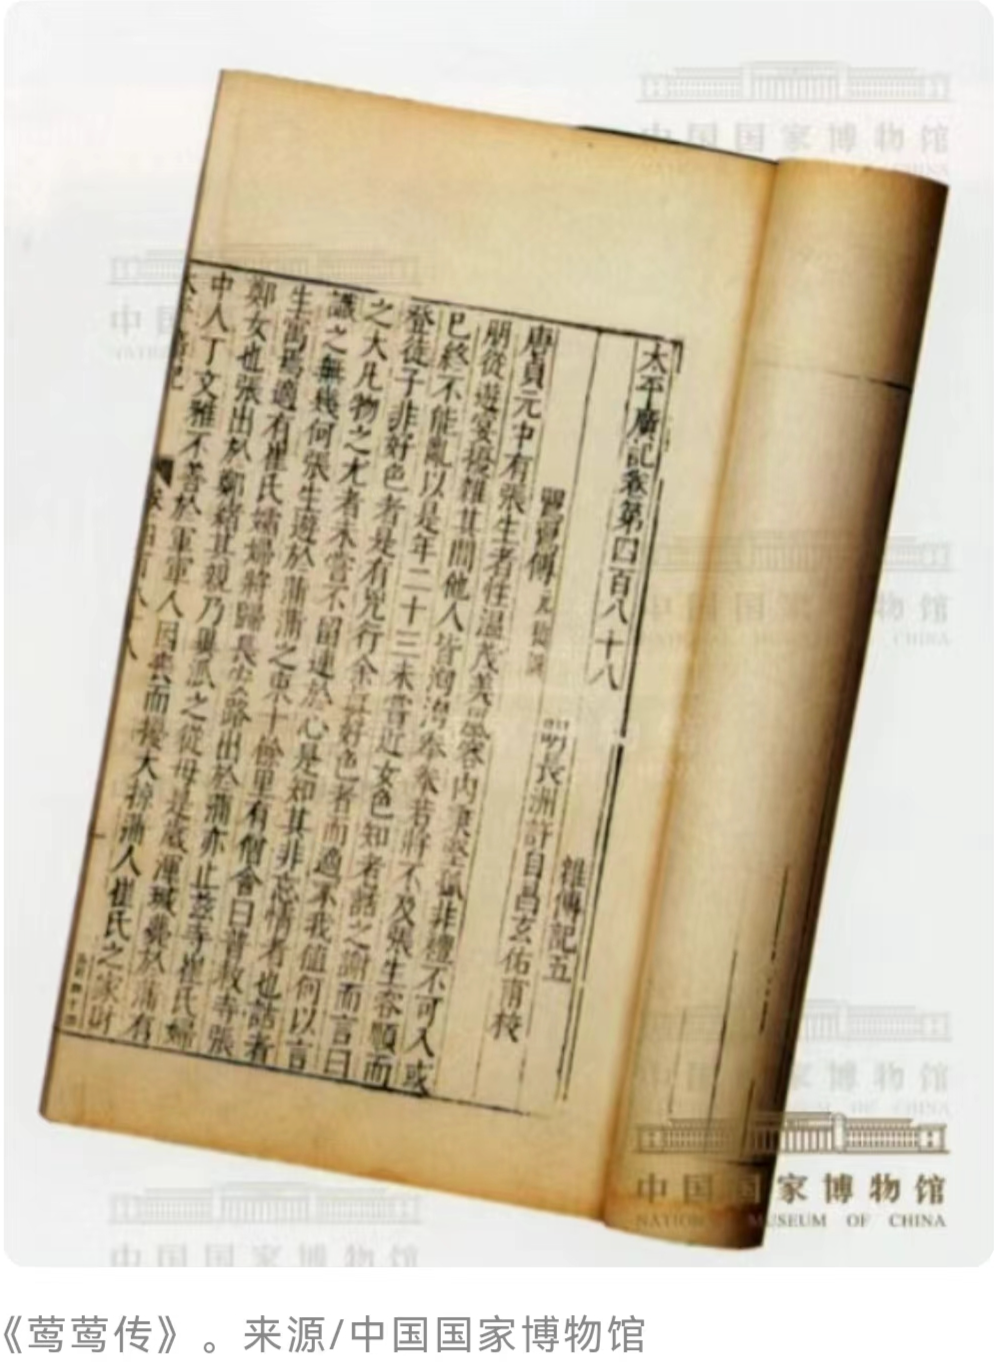 太平廣記卷第四百八十八
雜傳記五
明長洲許自昌玄祐甫校
鶯鶯傳 元稹撰
唐貞元中有張生者性溫茂美風容內秉堅孤非禮不可入或
朋從遊宴擾雜其間他人皆洶洶拳拳若將不及張生容順而
已終不能亂以是年二十三未嘗近女色知者詰之謝而言曰
登徒子非好色者是有兇行余真好色者而適不我值何以言
之大凡物之尤者未嘗不留連於心是知其非忘情者也詰者
識之無幾何張生遊於蒲蒲之東十餘里有僧舍曰普救寺張
生寓焉適有崔氏孀婦將歸長安路出於蒲亦止茲寺崔氏婦
鄭女也張出於鄭緒其親乃異派之從母是歲渾瑊薨於蒲有
中人丁文雅不善於軍軍人因喪而擾大掠蒲人崔氏之家財
中国国家博物馆
NATIONAL MUSEUM OF CHINA
《莺莺传》。来源/中国国家博物馆